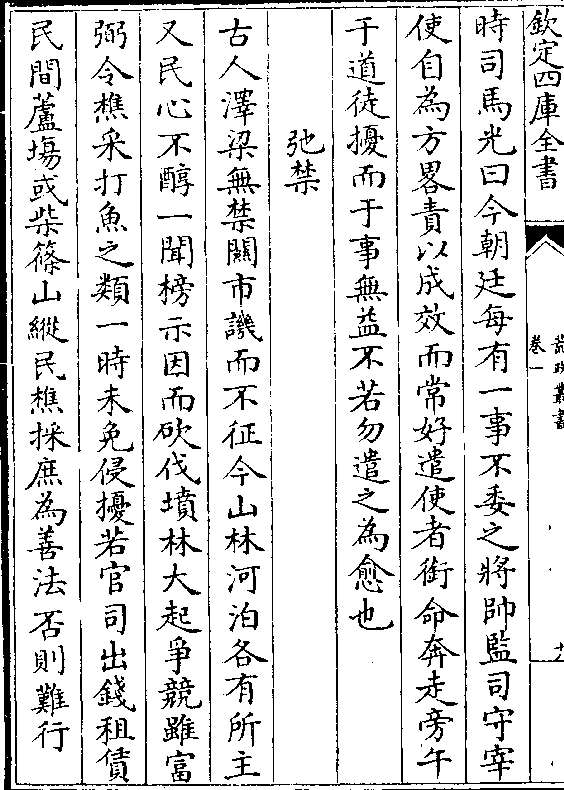 欽定四庫全書
荒政叢書
卷一
時司馬光曰今朝廷每有一事不委之將帥監司守宰
使自為方畧責以成效而常好遣使者銜命奔走旁午
于道徒擾而于事無益不若勿遣之為愈也
弛禁
古人澤梁無禁關市譏而不征今山林河泊各有所主
又民心不醇一聞榜示因而砍伐墳林大起爭競雖富
弼令樵采打魚之類一時未免侵擾若官司出錢租賃
民間蘆塲或柴篠山縱民樵採庶為善法否則難行